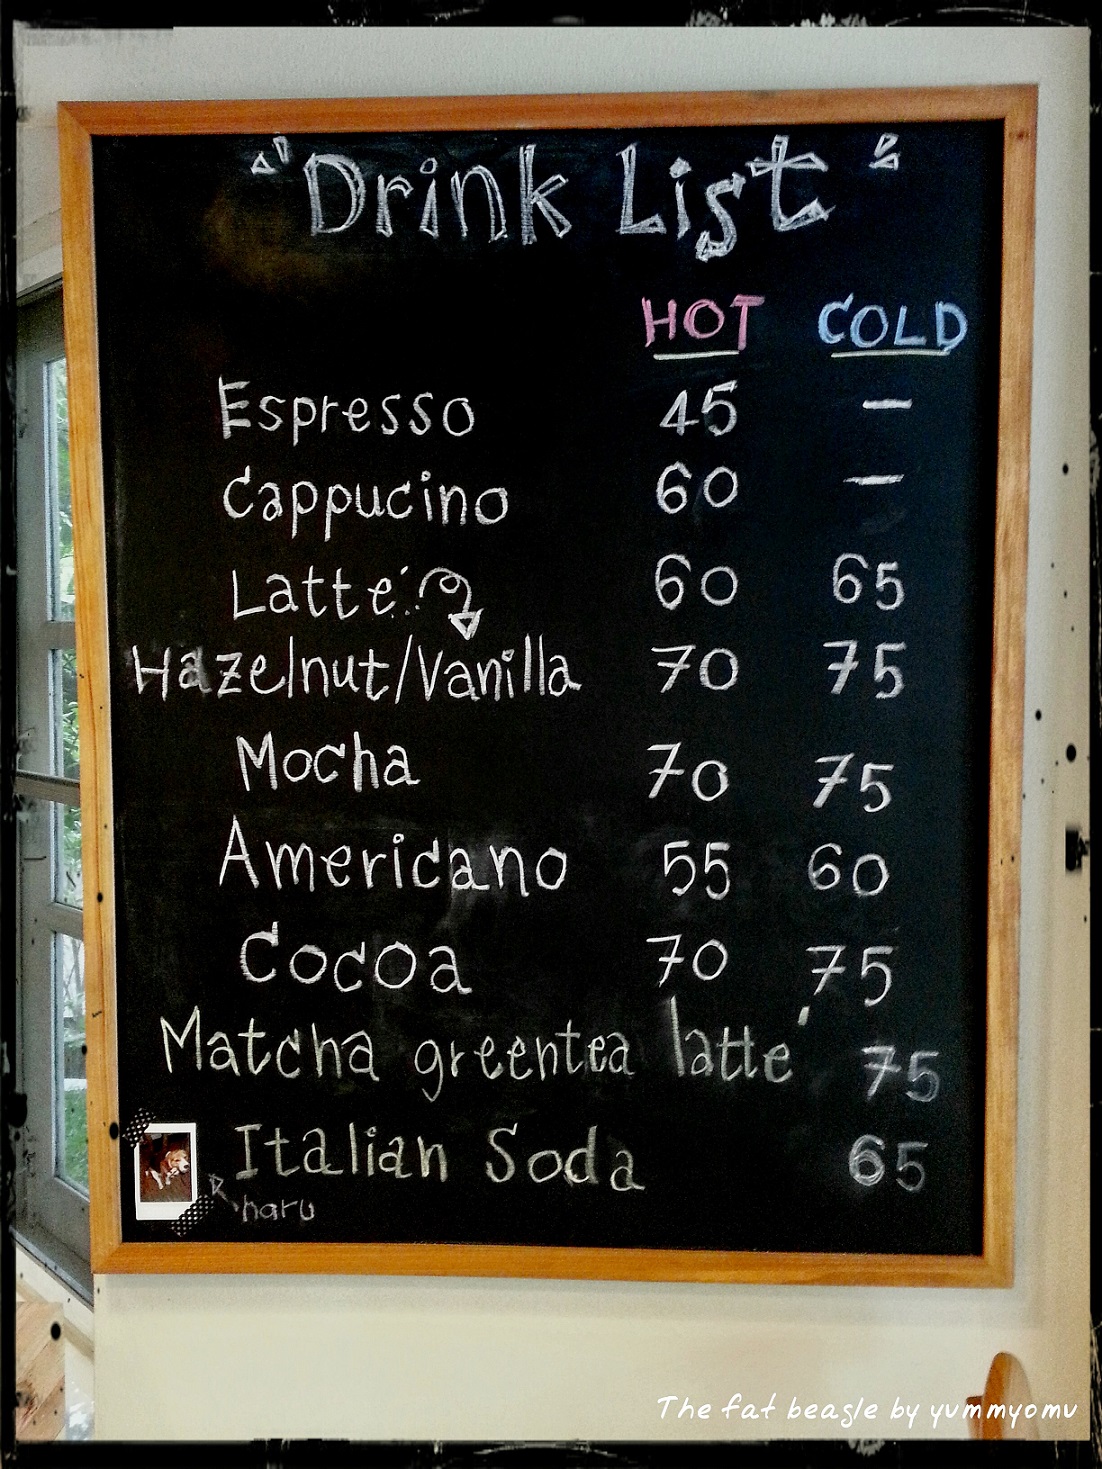 "Drink List"
HOT COLD
Espresso 45 —
Cappucino 60 —
Latte 60 65
Hazelnut/Vanilla 70 75
Mocha 70 75
Americano 55 60
Cocoa 70 75
Matcha greentea latte 75
Italian Soda 65
haru
The fat beagle by yummyomu